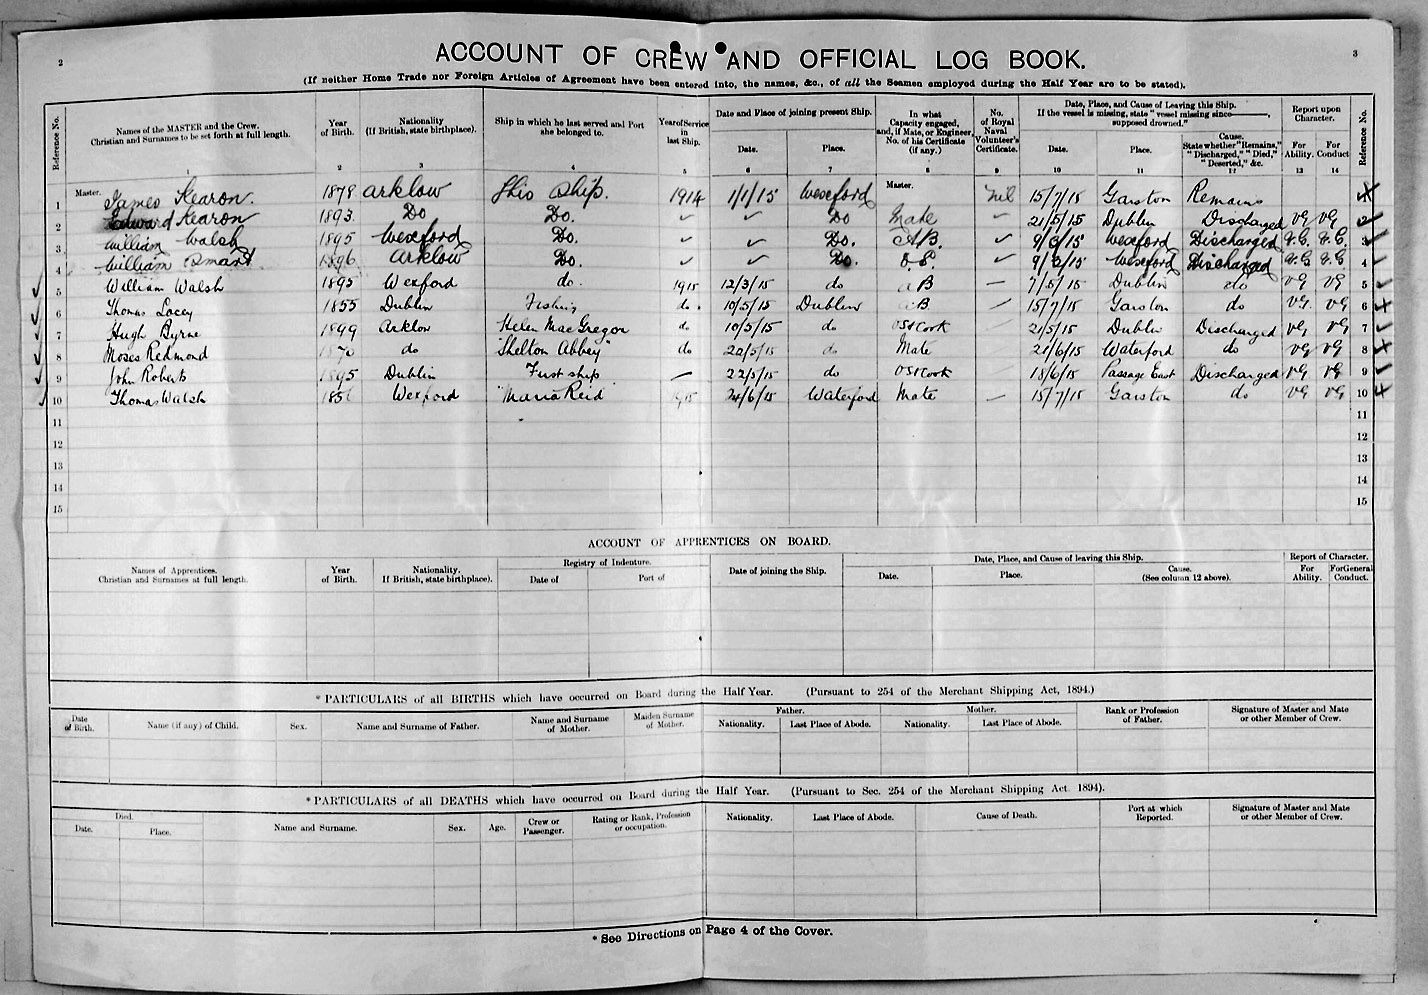 2
3
ACCOUNT OF CREW AND OFFICIAL LOG BOOK.
(If neither Home Trade nor Foreign Articles of Agreement have been entered into, the names, &c., of all the Seamen employed during the Half Year are to be stated).
Reference No. | Names of the MASTER and the Crew. Christian and Surnames to be set forth at full length. | Year of Birth. | Nationality (If British, state birthplace). | Ship in which he last served and Port she belonged to. | Year of Service in last Ship. | Date and Place of joining present Ship. Date. Place. | In what Capacity engaged, and, if Mate, or Engineer, No. of his Certificate (if any.) | No. of Royal Naval Volunteer's Certificate. | Date, Place, and Cause of Leaving this Ship. If the vessel is missing, state "vessel missing since ———, supposed drowned." Date. Place. Cause. State whether "Remains," "Discharged," "Died," "Deserted," &c. | Report upon Character. For Ability. For Conduct | Reference No.
1 2 3 4 5 6 7 8 9 10 11 12 13 14
1 Master. James Kearon. 1878 Arklow This Ship. 1914 1/1/15 Wexford Master. Nil 15/7/15 Garston Remains 1
2 Edward Kearon 1893 Do Do. Do Mate 21/5/15 Dublin Discharged VG VG 2
3 William Walsh 1895 Wexford Do. Do. A.B. 9/3/15 Wexford Discharged V.G. V.G. 3
4 William Smart 1896 Arklow Do. Do. O.S. 9/3/15 Wexford Discharged V.G V.G 4
5 William Walsh 1895 Wexford do. 1915 12/3/15 do AB — 7/5/15 Dublin do VG VG 5
6 Thomas Locey 1855 Dublin Fishing do. 10/5/15 Dublin AB 15/7/15 Garston do VG. VG 6
7 Hugh Byrne 1899 Arklow Helen MacGregor do 10/5/15 do OS & Cook 21/5/15 Dublin Discharged VG VG 7
8 Moses Redmond do "Shelton Abbey" do 20/5/15 do Mate 21/6/15 Waterford do VG VG 8
9 John Roberts 1895 Dublin First ship — 22/5/15 do OS & Cook 18/6/15 Passage East Discharged VG VG 9
10 Thomas Walsh Wexford "Maria Reid" 1915 24/6/15 Waterford Mate — 15/7/15 Garston do VG VG 10
11 11
12 12
13 13
14 14
15 15
ACCOUNT OF APPRENTICES ON BOARD.
Names of Apprentices. Christian and Surnames at full length. | Year of Birth. | Nationality. If British, state birthplace). | Registry of Indenture. Date of Port of | Date of joining the Ship. | Date, Place, and Cause of leaving this Ship. Date. Place. Cause. (See column 12 above). | Report of Character. For Ability. For General Conduct.
* PARTICULARS of all BIRTHS which have occurred on Board during the Half Year. (Pursuant to 254 of the Merchant Shipping Act, 1894.)
Date of Birth. | Name (if any) of Child. | Sex. | Name and Surname of Father. | Name and Surname of Mother. | Maiden Surname of Mother. | Father. Nationality. Last Place of Abode. | Mother. Nationality. Last Place of Abode. | Rank or Profession of Father. | Signature of Master and Mate or other Member of Crew.
* PARTICULARS of all DEATHS which have occurred on Board during the Half Year. (Pursuant to Sec. 254 of the Merchant Shipping Act. 1894).
Died. Date. Place. | Name and Surname. | Sex. | Age. | Crew or Passenger. | Rating or Rank, Profession or occupation. | Nationality. | Last Place of Abode. | Cause of Death. | Port at which Reported. | Signature of Master and Mate or other Member of Crew.
* See Directions on Page 4 of the Cover.